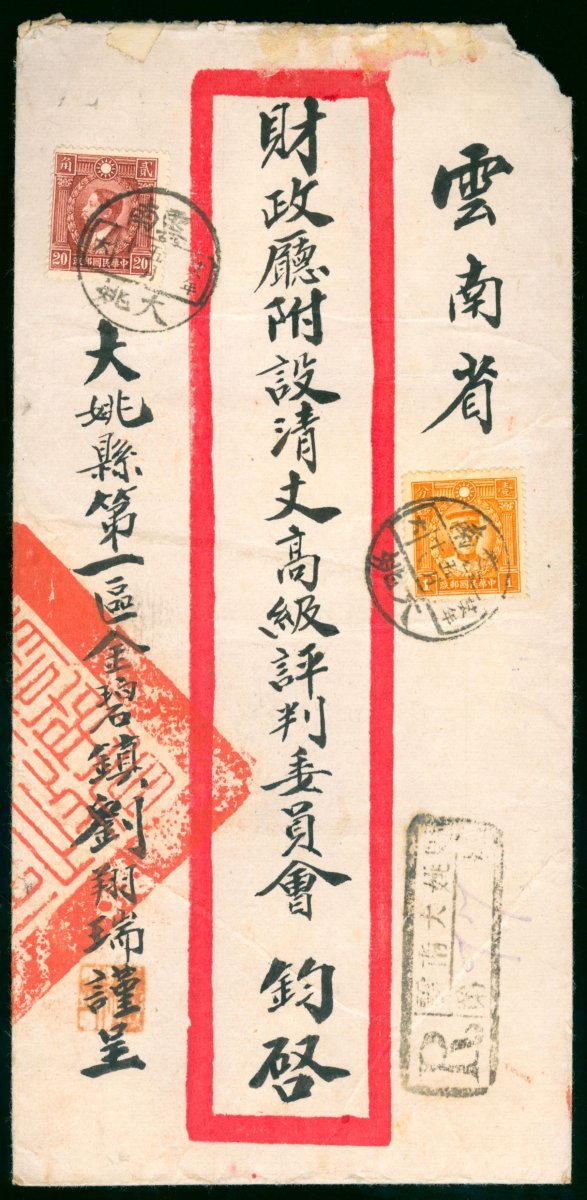 雲南省
財政廳附設清丈高級評判委員會 鈞啓
大姚縣第一區金碧鎮劉翔瑞謹呈
角 貳
20 中華民國郵政 20
雲南
大姚
分 壹
1 中華民國郵政 1
大姚
雲南大姚
R